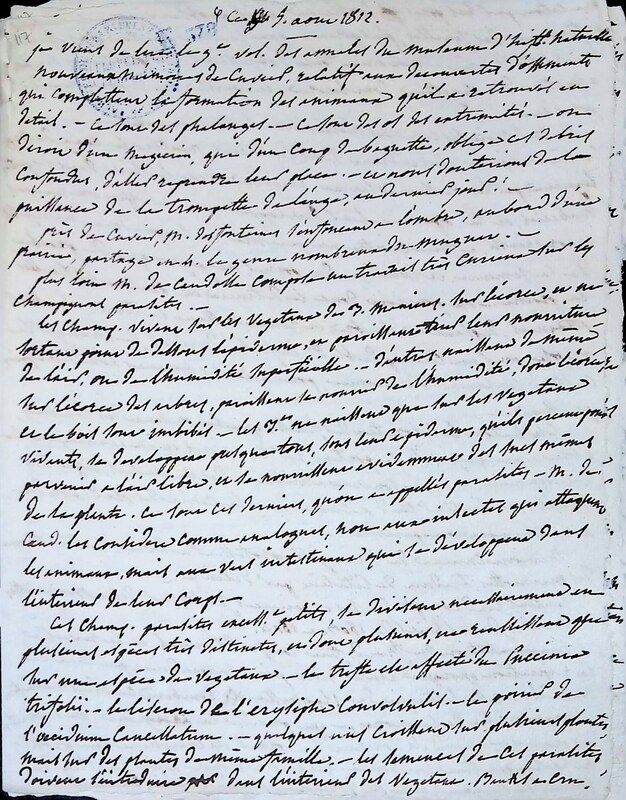 Ce 7. aout 1812.
117
je viens de lire le 9e vol. des annales du museum d'hist. naturelle
nouveaux mémoires de Cuvier, relatif aux decouvertes d'ossements
qui complettent la formation des animaux qu'il a retrouvés en
detail. - ce sont des phalanges - ce sont des os des extremités. - on
diroit d'un magicien, que d'un coup de baguette, oblige ces debris
confondus, d'aller reprendre leur place. - et nous douterions de la
puissance de la trompette de l'ange, au dernier jour! -
près de Cuvier, M. desfontaines s'enfonceau a l'ombre, au bord d'une
prairie, partage en le genre nombreux du muguet. -
plus loin M. de Candolle compose un travail très curieux sur les
champignons parasites. -
les champ. vivent sur les vegetaux de 3. manieres. sur l'écorce, en ne
sortant point de dessous l'épiderme, et paroissant tirer leur nourriture
de l'air, ou de l'humidité superficielle. - d'autres naissent de même
sur l'écorce des arbres, paroissent se nourrir de l'humidité, dont l'écorce
et le bois sont imbibés - les 3es ne naissent que sur les vegetaux
vivants, se developpent presque tous, sous leur épiderme, qu'ils percent pour
parvenir a l'air libre, et se nourrissent evidemment des sucs mêmes
de la plante. ce sont ces derniers, qu'on a appellés parasites - M. de
Cand. les considere comme analogues, non aux insectes qui attaquent
les animaux, mais aux vers intestinaux qui se développent dans
l'interieur de leur corps. -
Ces champ. parasites petits, se divisent necessairement en
plusieurs espèces très distinctes, et dont plusieurs, ne envahissent que
sur une espèce de vegetaux - le treffle est affecté du Puccinia
trifolii. - le liseron de l'erysiphe Convolvulii - le poirier de
l'oecidium Cancellatum. - quelques uns croissent sur plusieurs plantes,
mais sur des plantes de même famille. - les semences de ces parasites
doivent s'introduire dans l'interieur des vegetaux. Banks a cru,